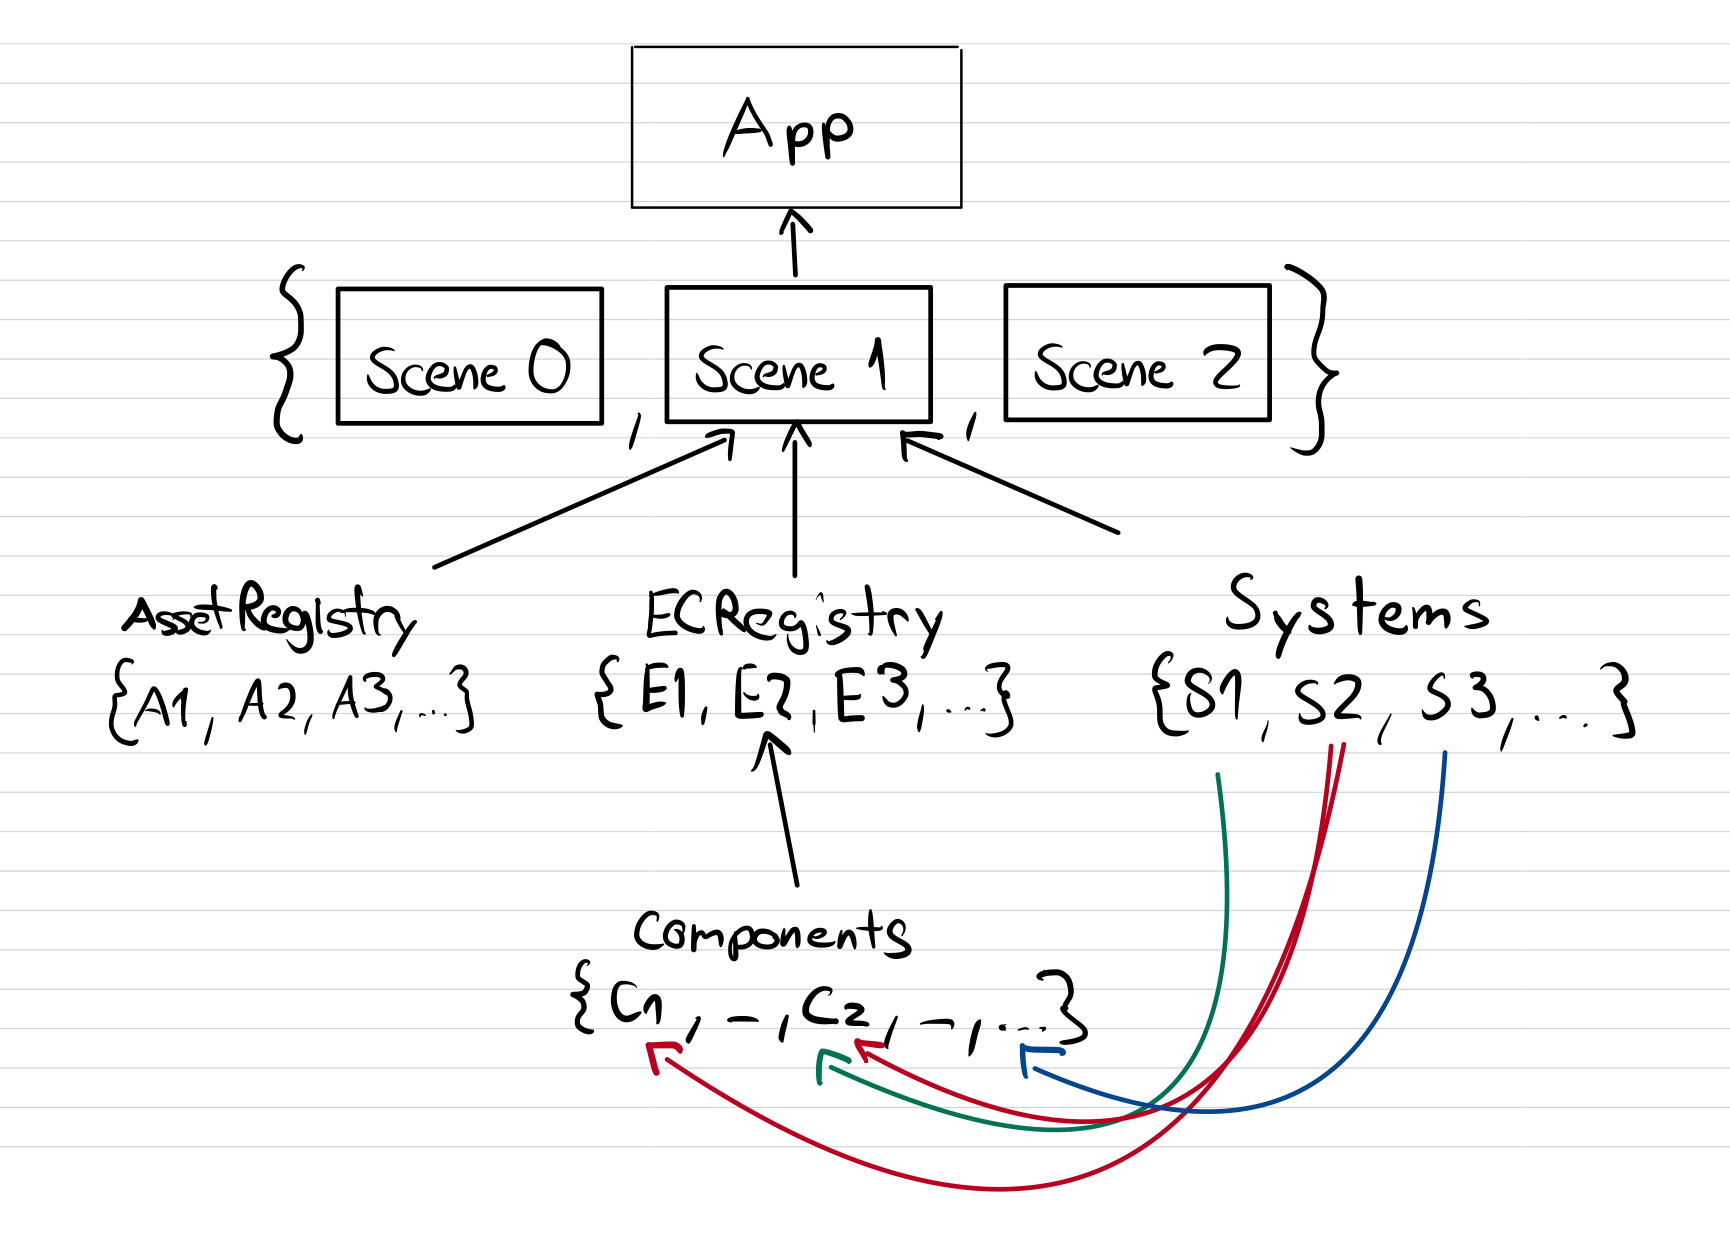 App
{ Scene 0 , Scene 1 , Scene 2 }
AssetRegistry
{A1, A2, A3, ...}
ECRegistry
{E1, E2, E3, ...}
Systems
{S1, S2, S3, ...}
Components
{C1, –, C2, –, ...}